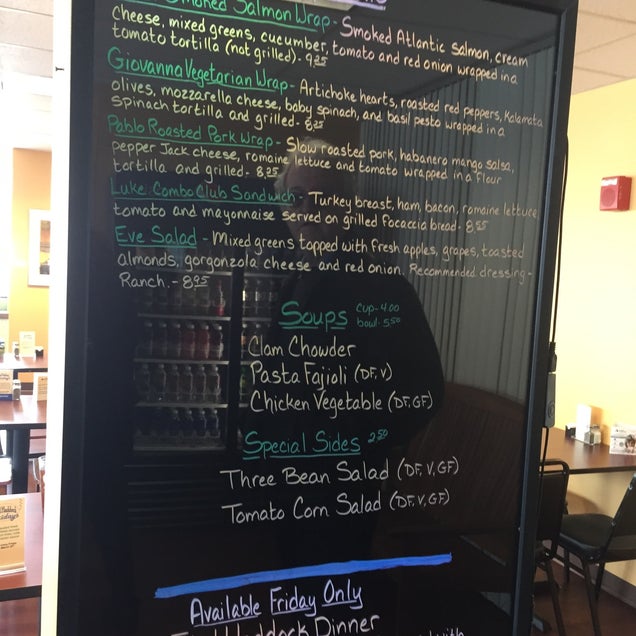 Smoked Salmon Wrap - Smoked Atlantic salmon, cream
cheese, mixed greens, cucumber, tomato and red onion wrapped in a
tomato tortilla (not grilled). - 9.25
Giovanna Vegetarian Wrap - Artichoke hearts, roasted red peppers, Kalamata
olives, mozzarella cheese, baby spinach, and basil pesto wrapped in a
spinach tortilla and grilled. - 8.25
Pablo Roasted Pork Wrap - Slow roasted pork, habanero mango salsa,
pepper Jack cheese, romaine lettuce and tomato wrapped in a flour
tortilla and grilled - 8.25
Luke Combo Club Sandwich - Turkey breast, ham, bacon, romaine lettuce
tomato and mayonnaise served on grilled focaccia bread - 8.95
Eve Salad - Mixed greens topped with fresh apples, grapes, toasted
almonds, gorgonzola cheese and red onion. Recommended dressing -
Ranch. - 8.95
Soups Cup - 4.00
bowl - 5.50
Clam Chowder
Pasta Fajioli (DF, V)
Chicken Vegetable (DF, GF)
Special Sides 2.50
Three Bean Salad (DF, V, GF)
Tomato Corn Salad (DF, V, GF)
Available Friday Only
Dinner
with